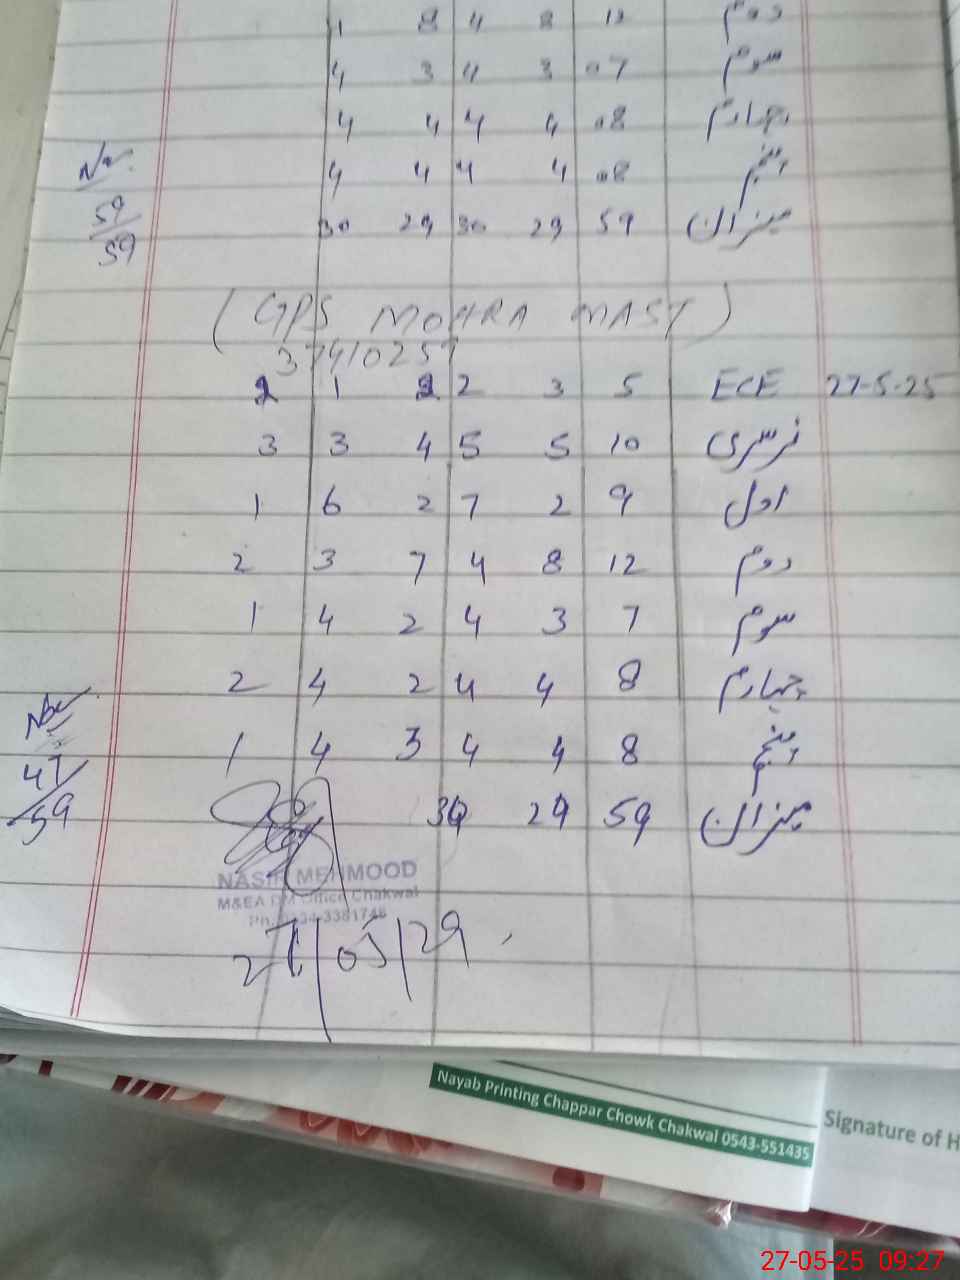 1 8 4 8 12 دوم
4 3 4 3 07 سوم
4 4 4 4 08 چہارم
4 4 4 4 08 پنجم
30 29 30 29 59 میزان
59/59
(GPS MOHRA MAST)
37410257
2 1 2 2 3 5 ECE 27-5-25
3 3 4 5 5 10 نرسری
1 6 2 7 2 9 اول
2 3 7 4 8 12 دوم
1 4 2 4 3 7 سوم
2 4 2 4 4 8 چہارم
1 4 3 4 4 8 پنجم
30 29 59 میزان
47/59
NASIR MEHMOOD
M&EA DM Office Chakwal
Ph. 0334-3381748
27/05/29
Nayab Printing Chappar Chowk Chakwal 0543-551435
Signature of H
27-05-25 09:27